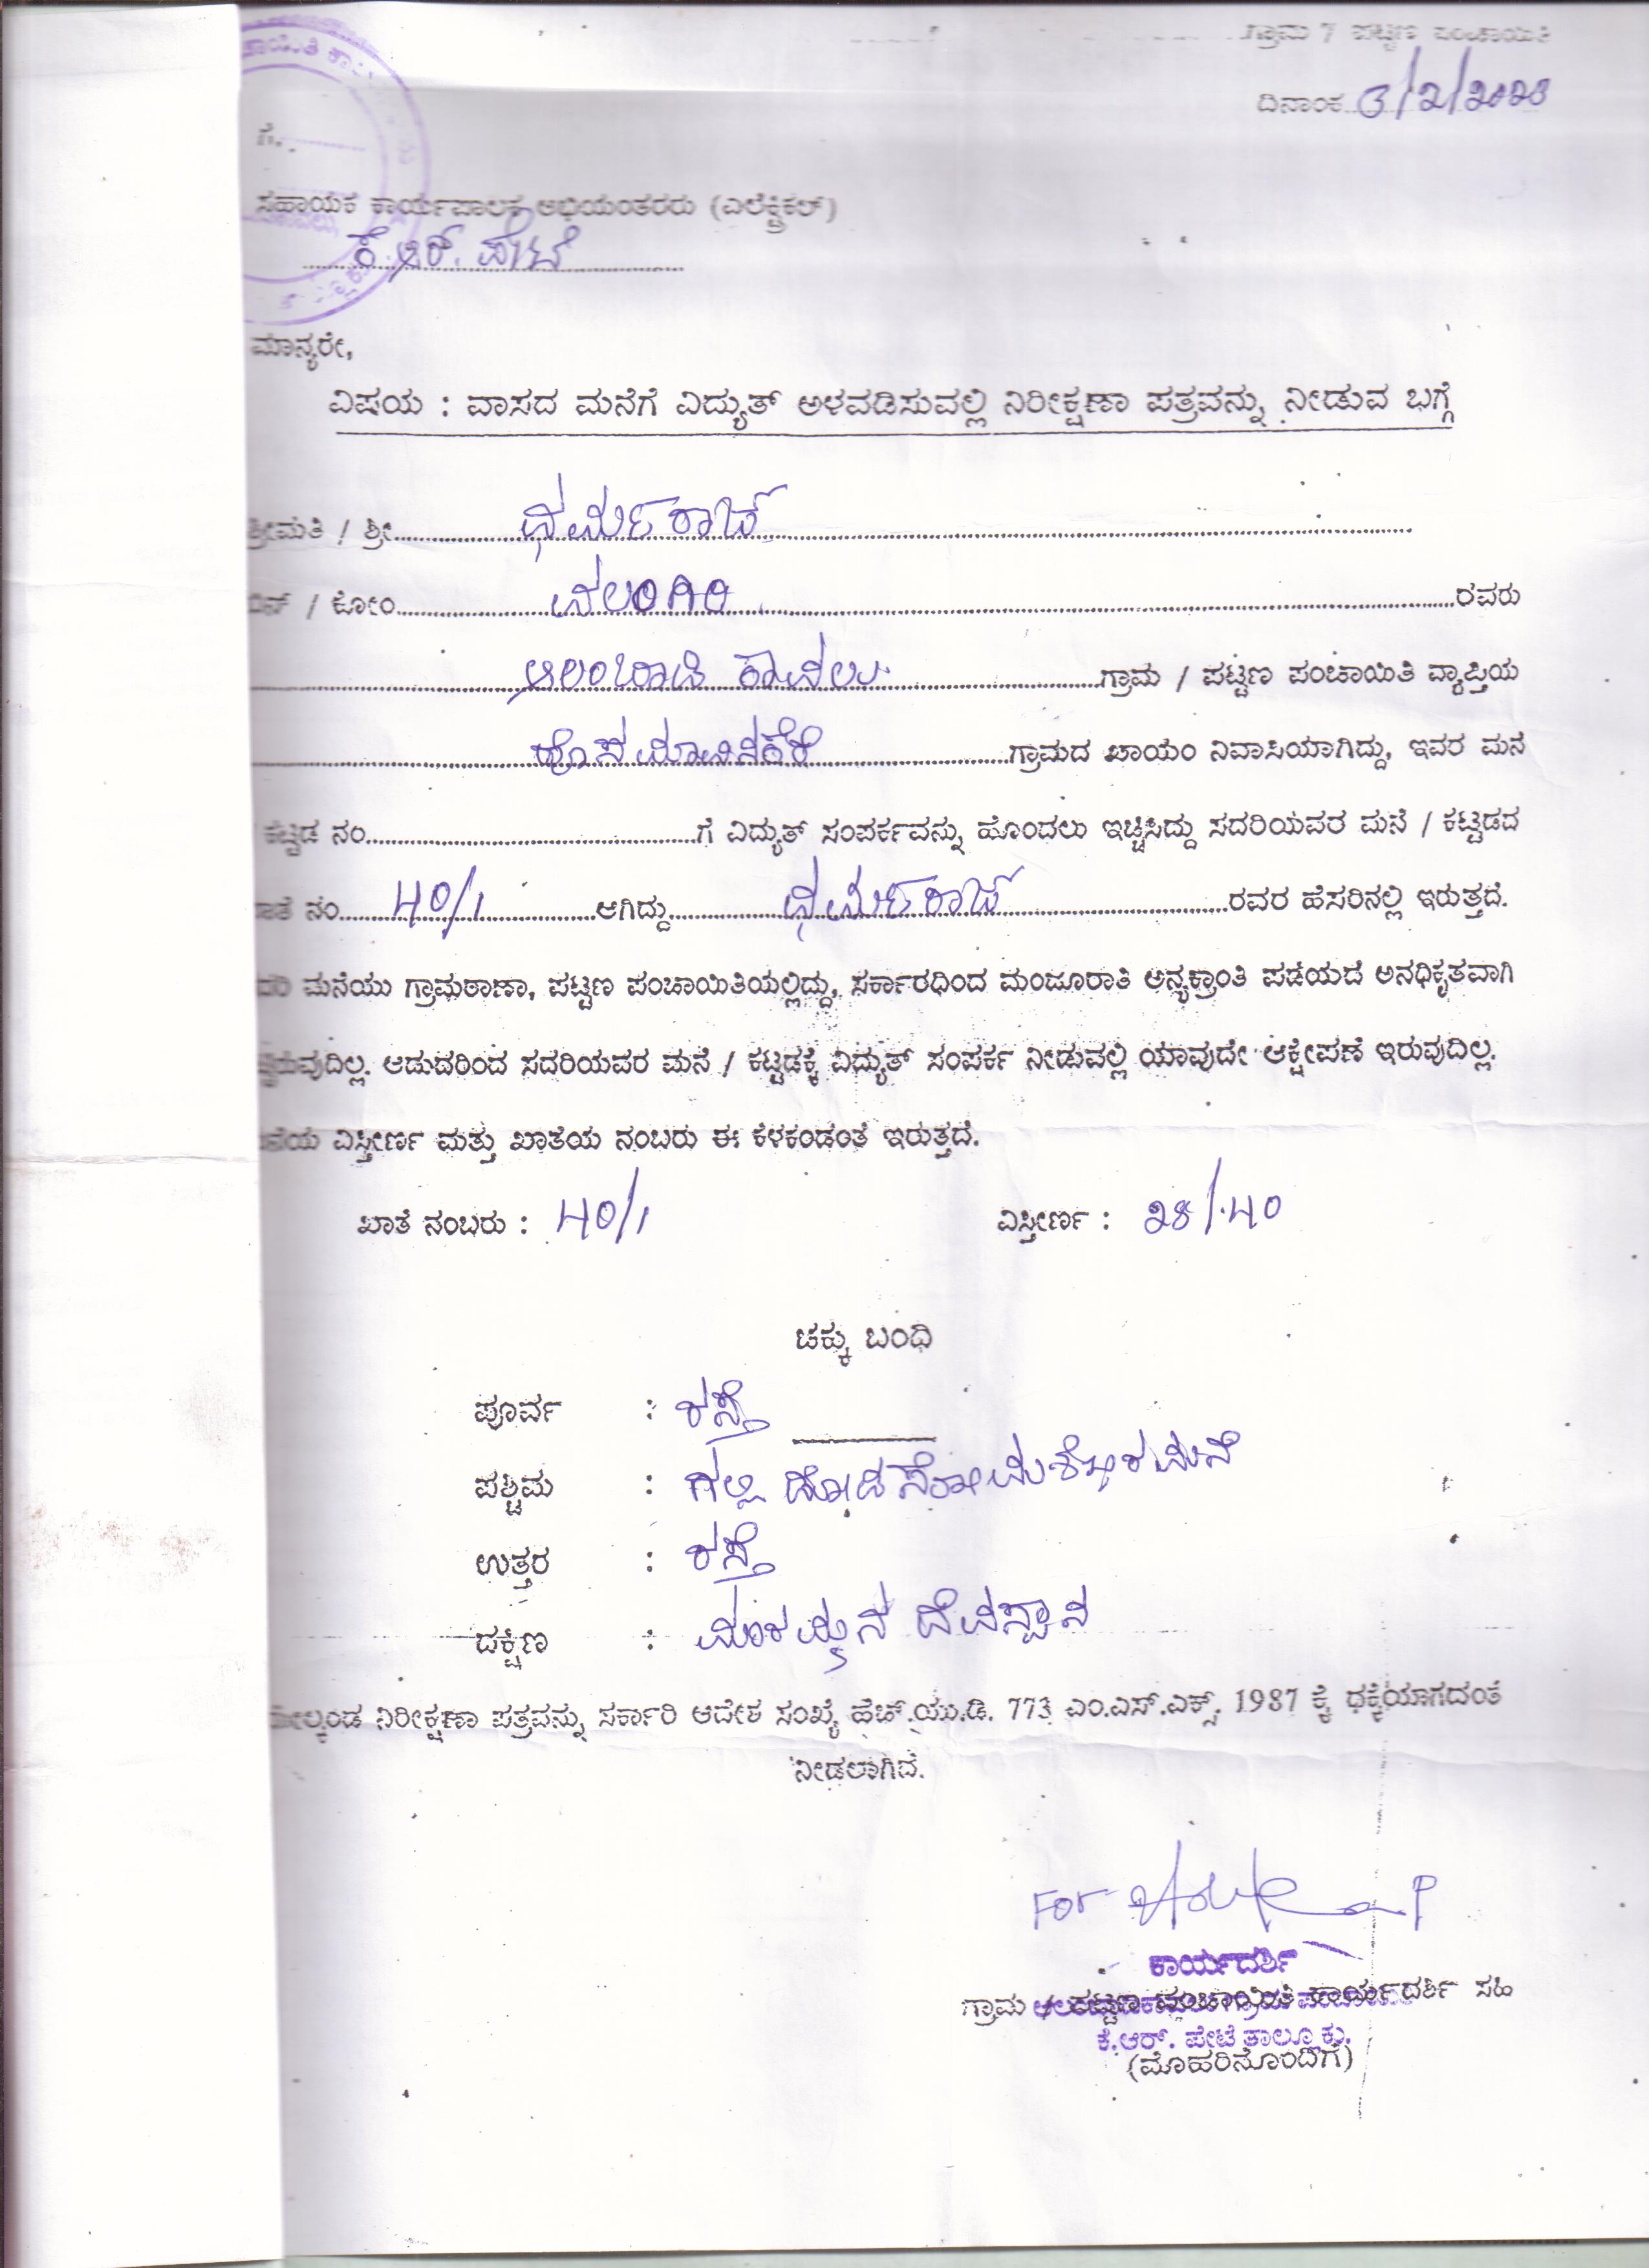 ಗ್ರಾಮ / ಪಟ್ಟಣ ಪಂಚಾಯಿತಿ
ದಿನಾಂಕ 3/2/2023
ಗೆ.
ಸಹಾಯಕ ಕಾರ್ಯಪಾಲಕ ಅಭಿಯಂತರರು (ಎಲೆಕ್ಟ್ರಿಕಲ್)
ಕೆ.ಆರ್. ಪೇಟೆ
ಮಾನ್ಯರೇ,
ವಿಷಯ : ವಾಸದ ಮನೆಗೆ ವಿದ್ಯುತ್ ಅಳವಡಿಸುವಲ್ಲಿ ನಿರೀಕ್ಷಣಾ ಪತ್ರವನ್ನು ನೀಡುವ ಬಗ್ಗೆ
ಶ್ರೀಮತಿ / ಶ್ರೀ ಧರ್ಮರಾಜ್
ಬಿನ್ / ಕೋಂ ರವರು
ಆಲಂಬಾಡಿ ಕಾವಲು ಗ್ರಾಮ / ಪಟ್ಟಣ ಪಂಚಾಯಿತಿ ವ್ಯಾಪ್ತಿಯ
ಹೊಸಮಾವಿನಕೆರೆ ಗ್ರಾಮದ ಖಾಯಂ ನಿವಾಸಿಯಾಗಿದ್ದು, ಇವರ ಮನೆ
ಕಟ್ಟಡ ನಂ ಗೆ ವಿದ್ಯುತ್ ಸಂಪರ್ಕವನ್ನು ಹೊಂದಲು ಇಚ್ಚಿಸಿದ್ದು ಸದರಿಯವರ ಮನೆ / ಕಟ್ಟಡದ
ಖಾತೆ ನಂ 40/1 ಆಗಿದ್ದು ಧರ್ಮರಾಜ್ ರವರ ಹೆಸರಿನಲ್ಲಿ ಇರುತ್ತದೆ.
ಮನೆಯು ಗ್ರಾಮಠಾಣಾ, ಪಟ್ಟಣ ಪಂಚಾಯಿತಿಯಲ್ಲಿದ್ದು, ಸರ್ಕಾರಧಿಂದ ಮಂಜೂರಾತಿ ಅನ್ಯಕ್ರಾಂತಿ ಪಡೆಯದೆ ಅನಧಿಕೃತವಾಗಿ
ಆದುದರಿಂದ ಸದರಿಯವರ ಮನೆ / ಕಟ್ಟಡಕ್ಕೆ ವಿದ್ಯುತ್ ಸಂಪರ್ಕ ನೀಡುವಲ್ಲಿ ಯಾವುದೇ ಆಕ್ಷೇಪಣೆ ಇರುವುದಿಲ್ಲ.
ವಿಸ್ತೀರ್ಣ ಮತ್ತು ಖಾತೆಯ ನಂಬರು ಈ ಕೆಳಕಂಡಂತೆ ಇರುತ್ತದೆ.
ಖಾತೆ ನಂಬರು : 40/1 ವಿಸ್ತೀರ್ಣ : 28/40
ಚಕ್ಕು ಬಂಧಿ
ಪೂರ್ವ : ರಸ್ತೆ
ಪಶ್ಚಿಮ : ಗಲ್ಲಿ
ಉತ್ತರ : ರಸ್ತೆ
ದಕ್ಷಿಣ : ದೇವಸ್ಥಾನ
ಮೇಲ್ಕಂಡ ನಿರೀಕ್ಷಣಾ ಪತ್ರವನ್ನು ಸರ್ಕಾರಿ ಆದೇಶ ಸಂಖ್ಯೆ ಹೆಚ್.ಯು.ಡಿ. 773 ಎಂ.ಎಸ್.ಎಕ್ಸ್. 1987 ಕ್ಕೆ ಧಕ್ಕೆಯಾಗದಂತೆ
ನೀಡಲಾಗಿದೆ.
For
ಕಾರ್ಯದರ್ಶಿ
ಗ್ರಾಮ / ಪಟ್ಟಣ ಪಂಚಾಯಿತಿ ಕಾರ್ಯದರ್ಶಿ ಸಹಿ
ಕೆ.ಆರ್. ಪೇಟೆ ತಾಲ್ಲೂಕು.
(ಮೊಹರಿನೊಂದಿಗೆ)